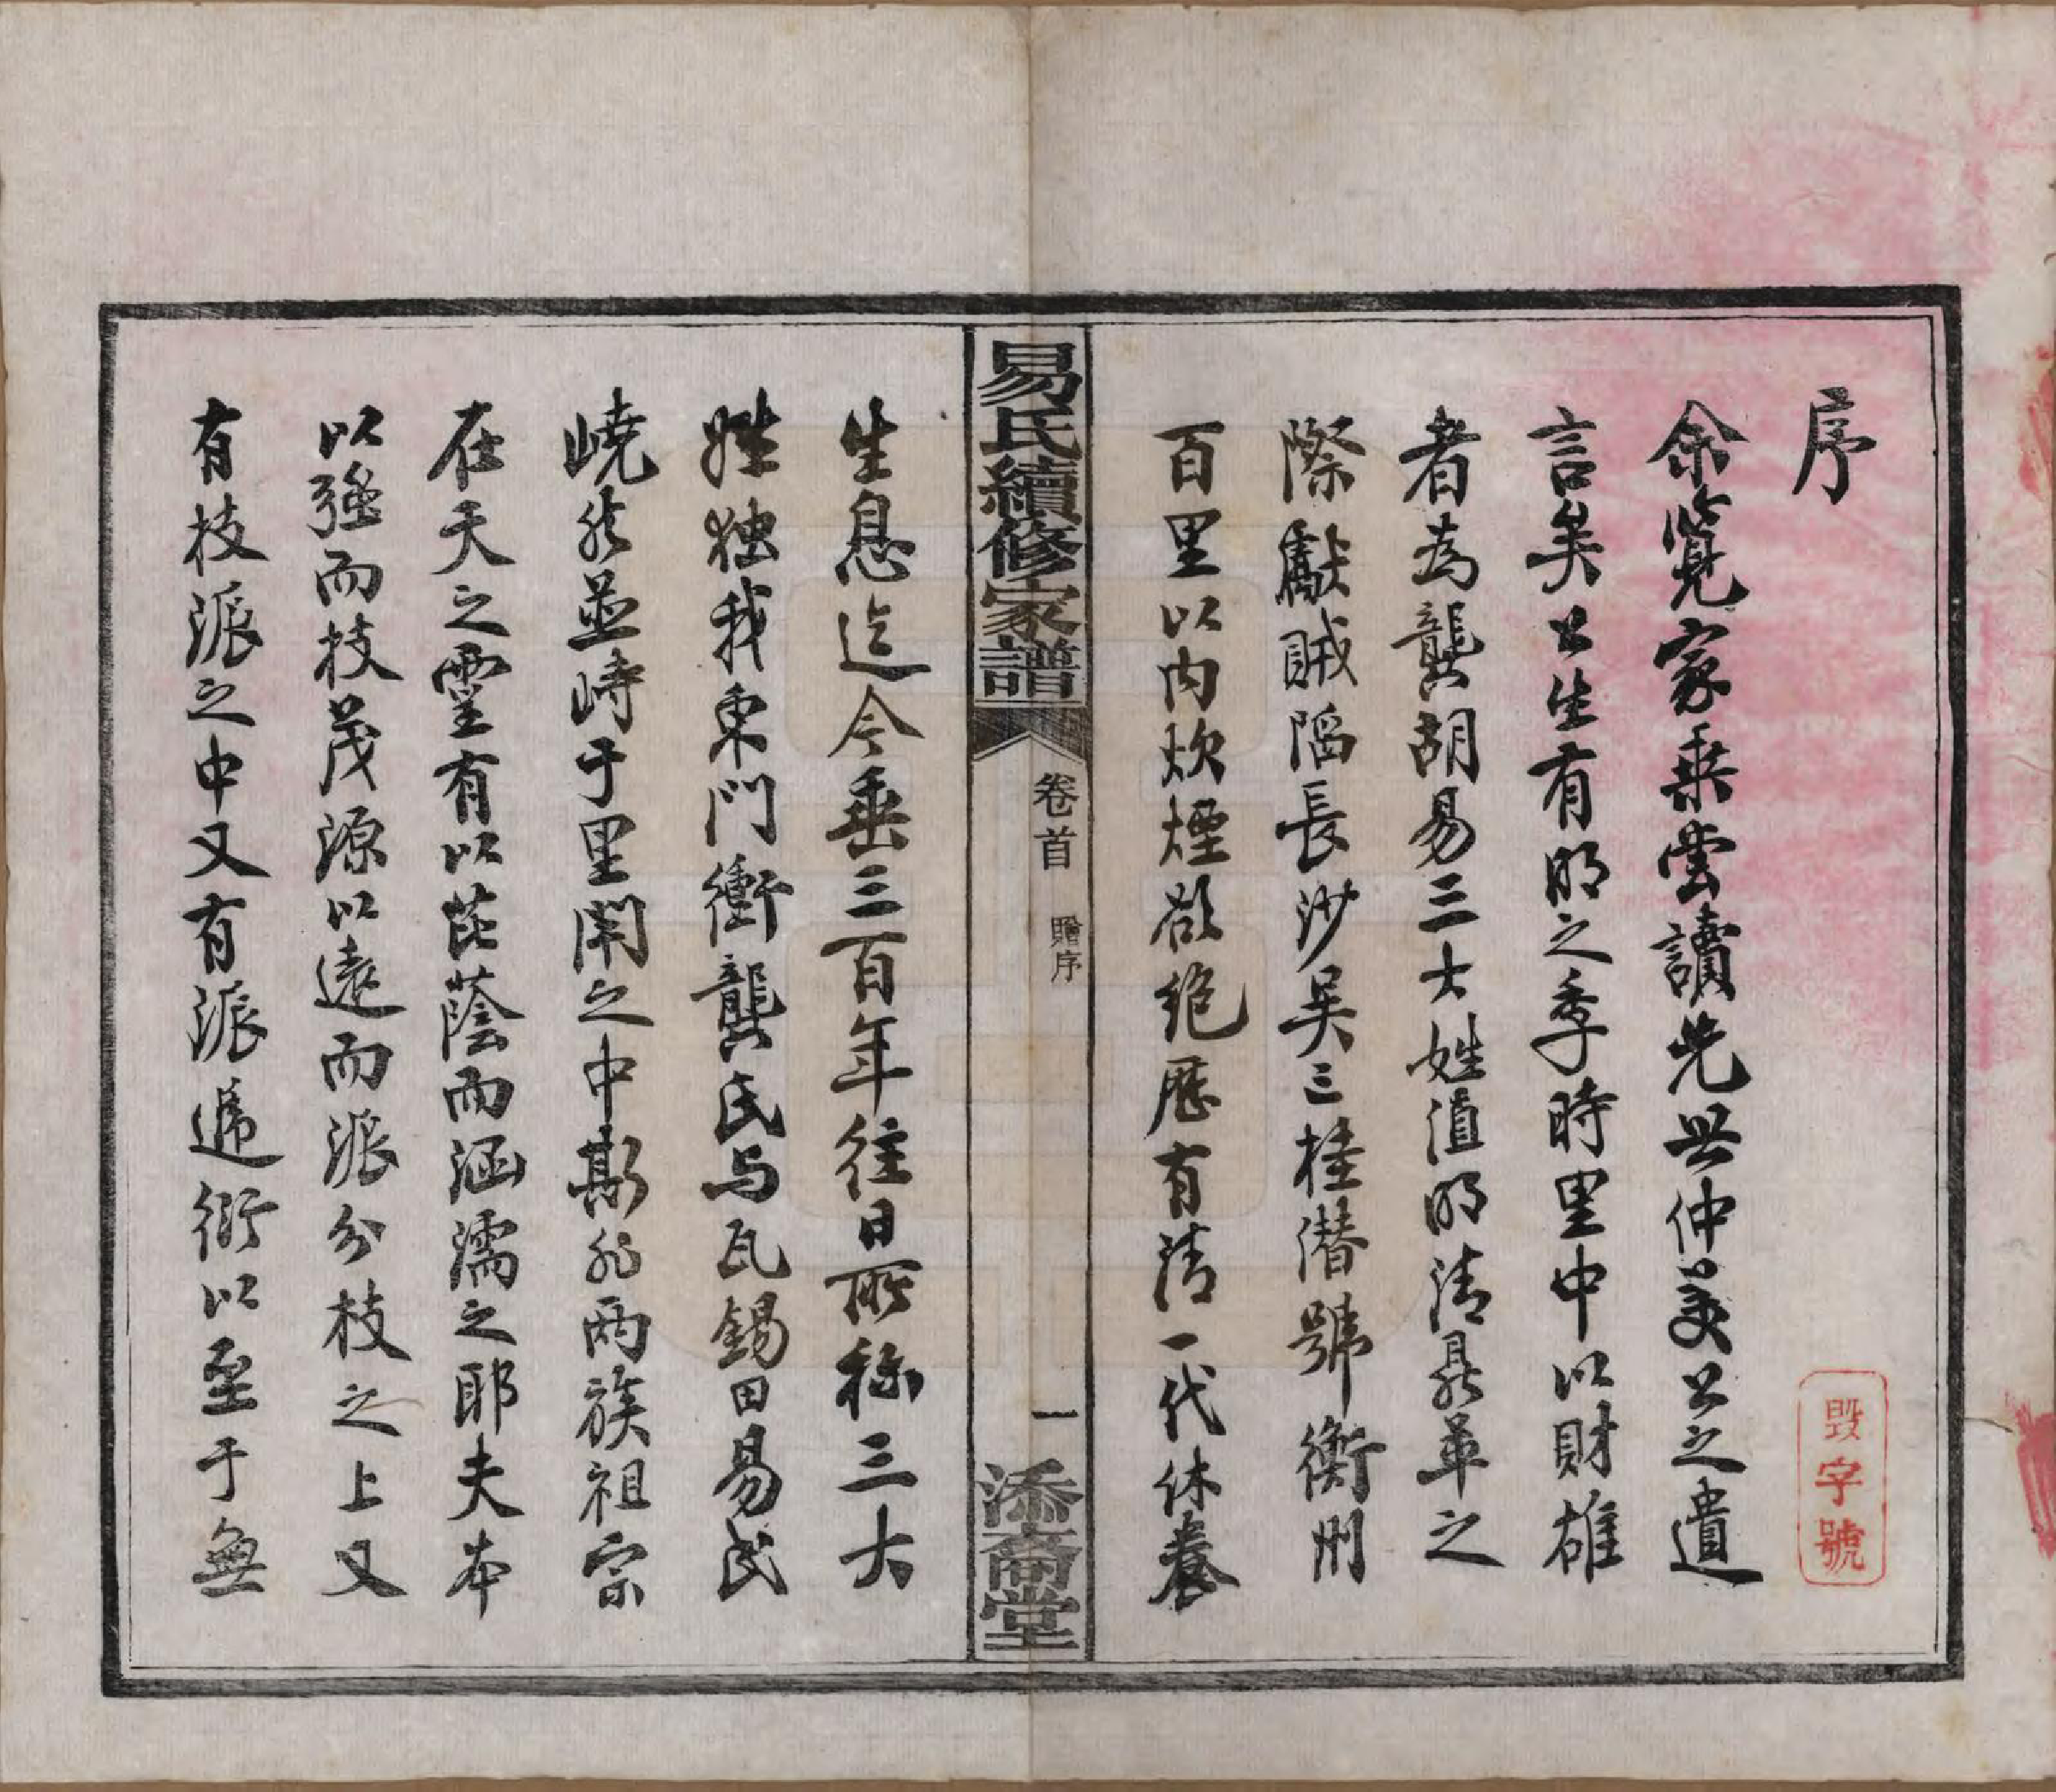 序
余覽家乘嘗讀先世仲美公之遺
言矣公生有明之季時里中以財雄
者為龔胡易三大姓值明清鼎革之
際獻賊陷長沙吳三桂潛號衡州
百里以内炊煙欲絶歷有清一代休養
易氏續修家譜
卷首 贈序
一
添商堂
生息迄今垂三百年往日所称三大
姓独我東門衝龔氏与瓦錫田易氏
嶢然並峙于里閈之中斯非兩族祖宗
在天之靈有以芘蔭而涵濡之耶夫本
以強而枝茂源以遠而派分枝之上又
有枝派之中又有派遞衍以至于無
毀字號